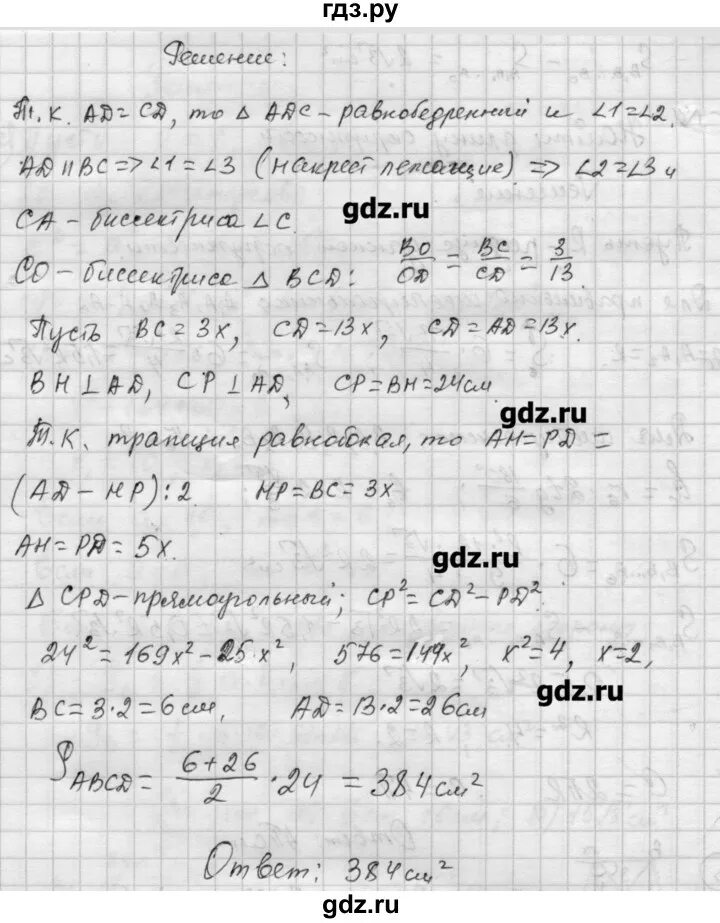 гдз.ру
Решение:
Т.к. AD=CD, то △ ADC – равнобедренный и ∠1=∠2.
AD ∥ BC => ∠1=∠3 (накрест лежащие) => ∠2=∠3 и
CA – биссектриса ∠C.
gdz.ru
CO – биссектриса △ BCD: BO/OD = BC/CD = 3/13.
Пусть BC=3x, CD=13x, CD=AD=13x.
BH⊥AD, CP⊥AD, CP=BH=24см
gdz.ru
Т.к. трапеция равнобокая, то AH=PD=
(AD–HP):2. HP=BC=3x
AH=PD=5x.
gdz.ru
△ CPD–прямоугольный; CP²=CD²–PD².
24²=169x²–25·x², 576=144x², x²=4, x=2,
gdz.ru
BC=3·2=6см, AD=13·2=26см
S ABCD = (6+26)/2 · 24 = 384см².
Ответ: 384см²
gdz.ru